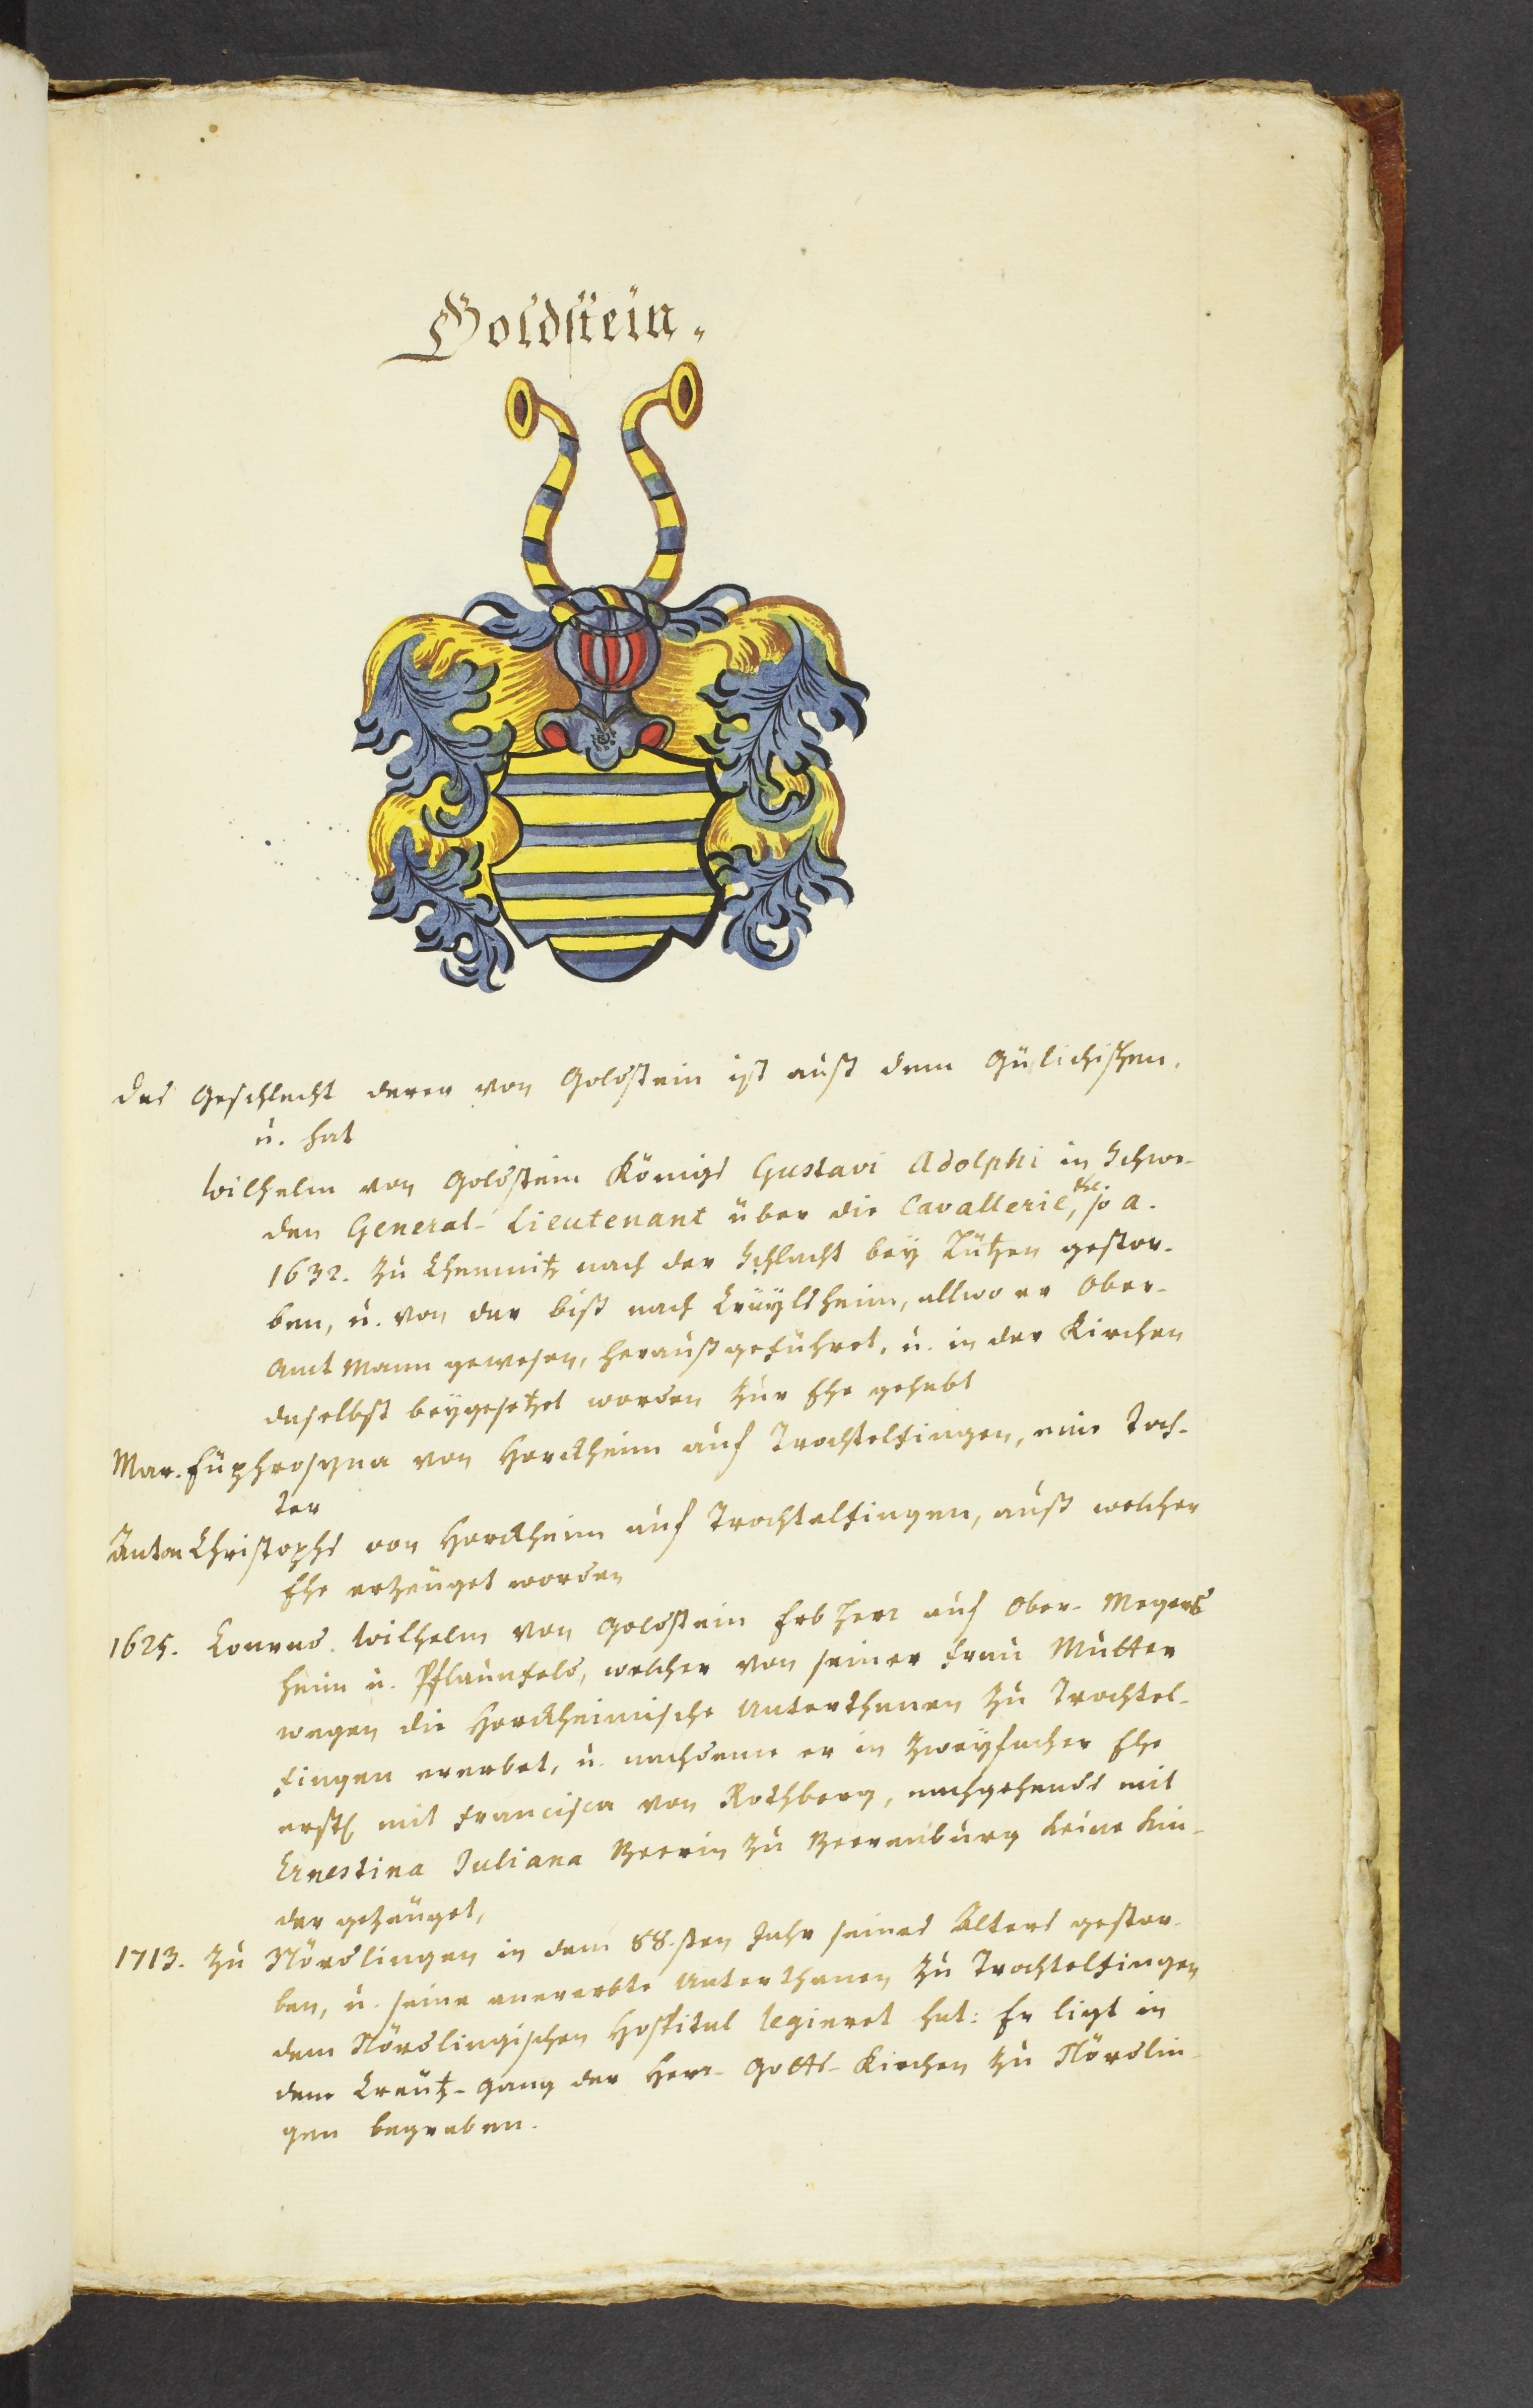 Goldstein.
Das Geschlecht derer von Goldstein ist auß dem Gülichischen,
u. hat
Wilhelm von Goldstein Königs Gustavi Adolphi in Schwe-
den General-Lieutenant über die Cavallerie, so a.
1632. zu Chemnitz nach der Schlacht bey Lützen gestor-
ben, u. von dar biß nach Cräylsheim, allwo er Ober-
Amt Mann gewesen, herauß geführet, u. in der Kirchen
daselbst beygesetzet worden zur Ehe gehabt
Mar. Euphrosyna von Horckheim auf Trochtelfingen, eine Toch-
ter
Anton Christophs von Horckheim auf Trochtelfingen, auß welcher
Ehe erzeuget worden
1625. Conrad Wilhelm von Goldstein Erb Herr auf Ober-Megers
heim u. Pflaunfeld, welcher von seiner Frau Mutter
wegen die Horckheimische Unterthanen zu Trochtel-
fingen ererbet, u. nachdeme er in zweyfacher Ehe
erstl. mit Francisca von Rothberg, nachgehends mit
Ernestina Juliana zu keine Kin-
der gezeuget,
1713. zu Nördlingen in dem 88.sten Jahr seines Alters gestor-
ben, u. seine anererbte Unterthanen zu Trochtelfingen
dem Nördlingischen Hospital legieret hat: Er ligt in
dem Creutz-Gang der Herr-Gotts-Kirchen zu Nördlin-
gen begraben.